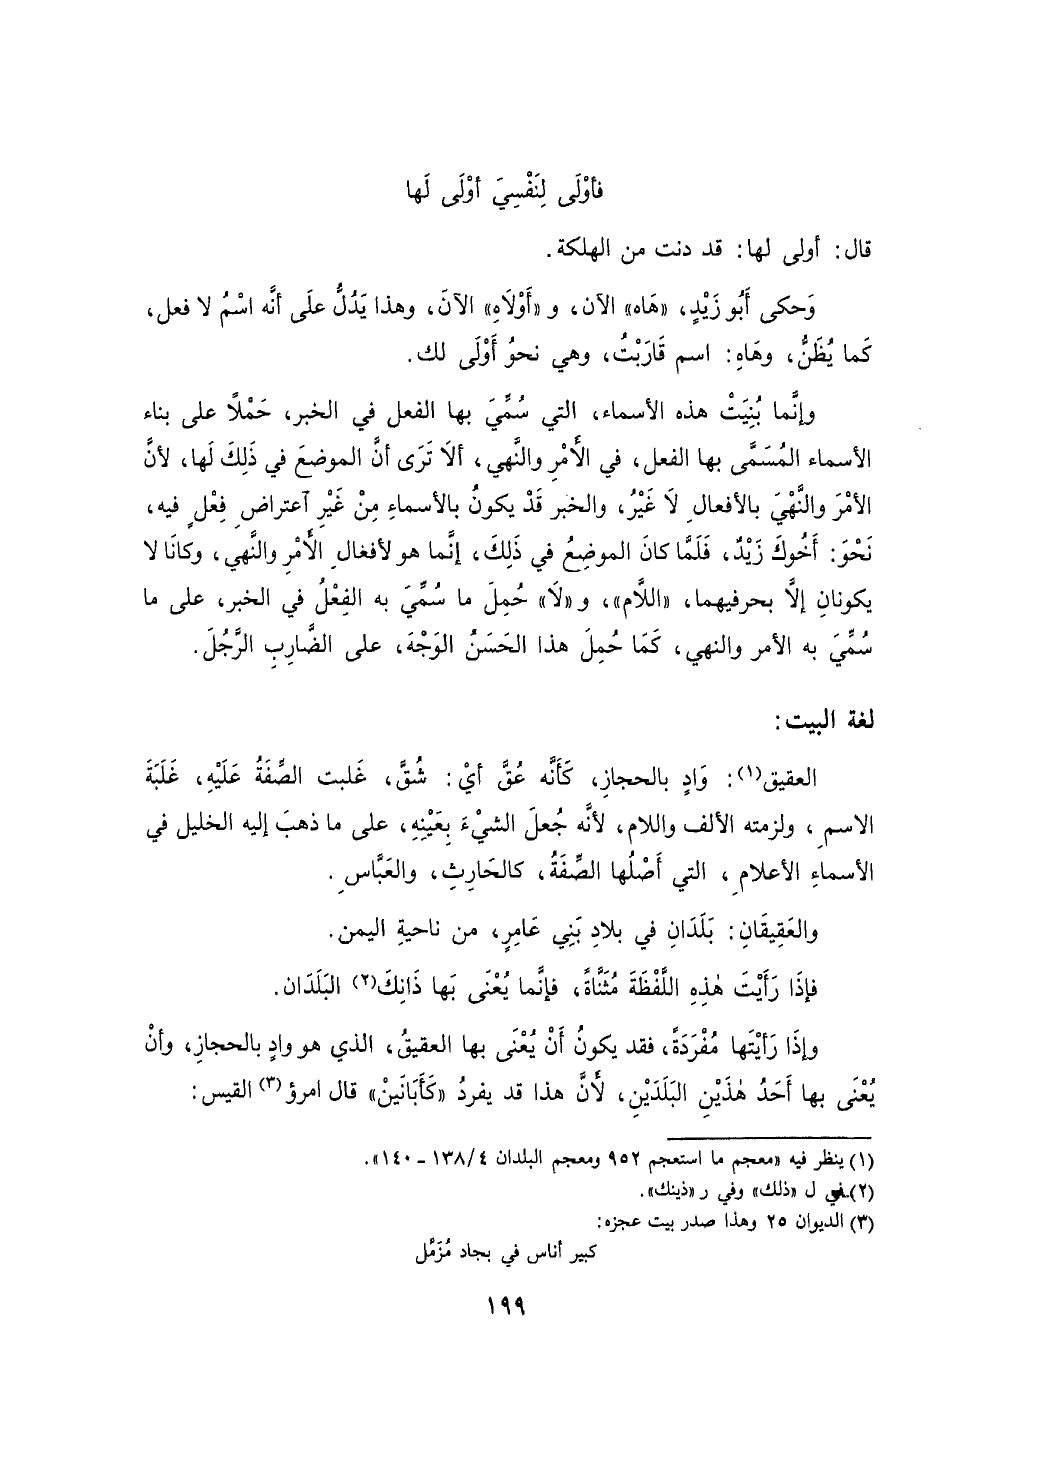 فأوْلَى لِنَفْسِيَ أوْلَى لَها
قال: أولى لها: قد دنت من الهلكة.
وَحكى أَبُو زَيْدٍ، «هَاه» الآن، و «أَوْلَاهِ» الآنَ، وهذا يَدُلُّ علَى أنَّه اسْمُ لا فعل،
كَما يُظَنُّ، وهَاهِ: اسم قَارَبْتُ، وهي نحوُ أَوْلَى لك.
وإنَّما بُنِيَتْ هذه الأسماء، التي سُمِّيَ بها الفعل في الخبر، حَمْلًا على بناء
الأسماء المُسَمَّى بها الفعل، في الأَمْرِ والنَّهي، ألاَ تَرَى أنَّ الموضعَ في ذَلِكَ لَها، لأنَّ
الأمْرَ والنَّهْيَ بالأفعالِ لَا غَيْرُ، والخبر قَدْ يكونُ بالأسماءِ مِنْ غَيْرِ آعتراضِ فِعْلٍ فيه،
نَحْوَ: أَخُوكَ زَيْدٌ، فَلَمَّا كانَ الموضِعُ في ذَلِكَ، إنَّما هو لأفعالِ الأَمْرِ والنَّهي، وكانَا لا
يكونانِ إلَّا بحرفيهما، «اللَّام»، و «لَا» حُمِلَ ما سُمِّيَ به الفِعْلُ في الخبر، على ما
سُمِّيَ به الأمر والنهي، كَمَا حُمِلَ هذا الحَسَنُ الوَجْهَ، على الضَّارِبِ الرَّجُلَ.
لغة البيت:
العقيق(١): وَادٍ بالحجازِ، كَأَنَّه عُقَّ أيْ: شُقَّ، غَلبت الصِّفَةُ عَلَيْهِ، غَلَبَةَ
الاسمِ، ولزمته الألف واللام، لأنَّه جُعلَ الشيْءَ بِعَيْنِهِ، على ما ذهبَ إليه الخليل في
الأسماءِ الأعلامِ، التي أَصْلُها الصِّفَةُ، كالحَارِثِ، والعَبَّاسِ.
والعَقِيقَانِ: بَلَدَانِ في بلادِ بَنِي عَامِرٍ، من ناحيةِ اليمن.
فإذَا رَأَيْتَ هٰذِهِ اللَّفْظَةَ مُثَنَّاةً، فإنَّما يُعْنَى بَها ذَانِكَ(٢) البَلَدَان.
وإذَا رَأيْتَها مُفْرَدَةً، فقد يكونُ أَنْ يُعْنَى بها العقيقُ، الذي هو وادٍ بالحجازِ، وأنْ
يُعْنَى بها أَحَدُ هٰذَيْنِ البَلَدَيْنِ، لأَنَّ هذا قد يفردُ «كَأَبَانَينْ» قال امرؤ(٣) القيس:
(١) ينظر فيه «معجم ما استعجم ٩٥٢ ومعجم البلدان ١٣٨/٤ ـ ١٤٠».
(٢) في ل «ذلك» وفي ر «ذينك».
(٣) الديوان ٢٥ وهذا صدر بيت عجزه:
كبير أناس في بجاد مُزَمَّل
١٩٩